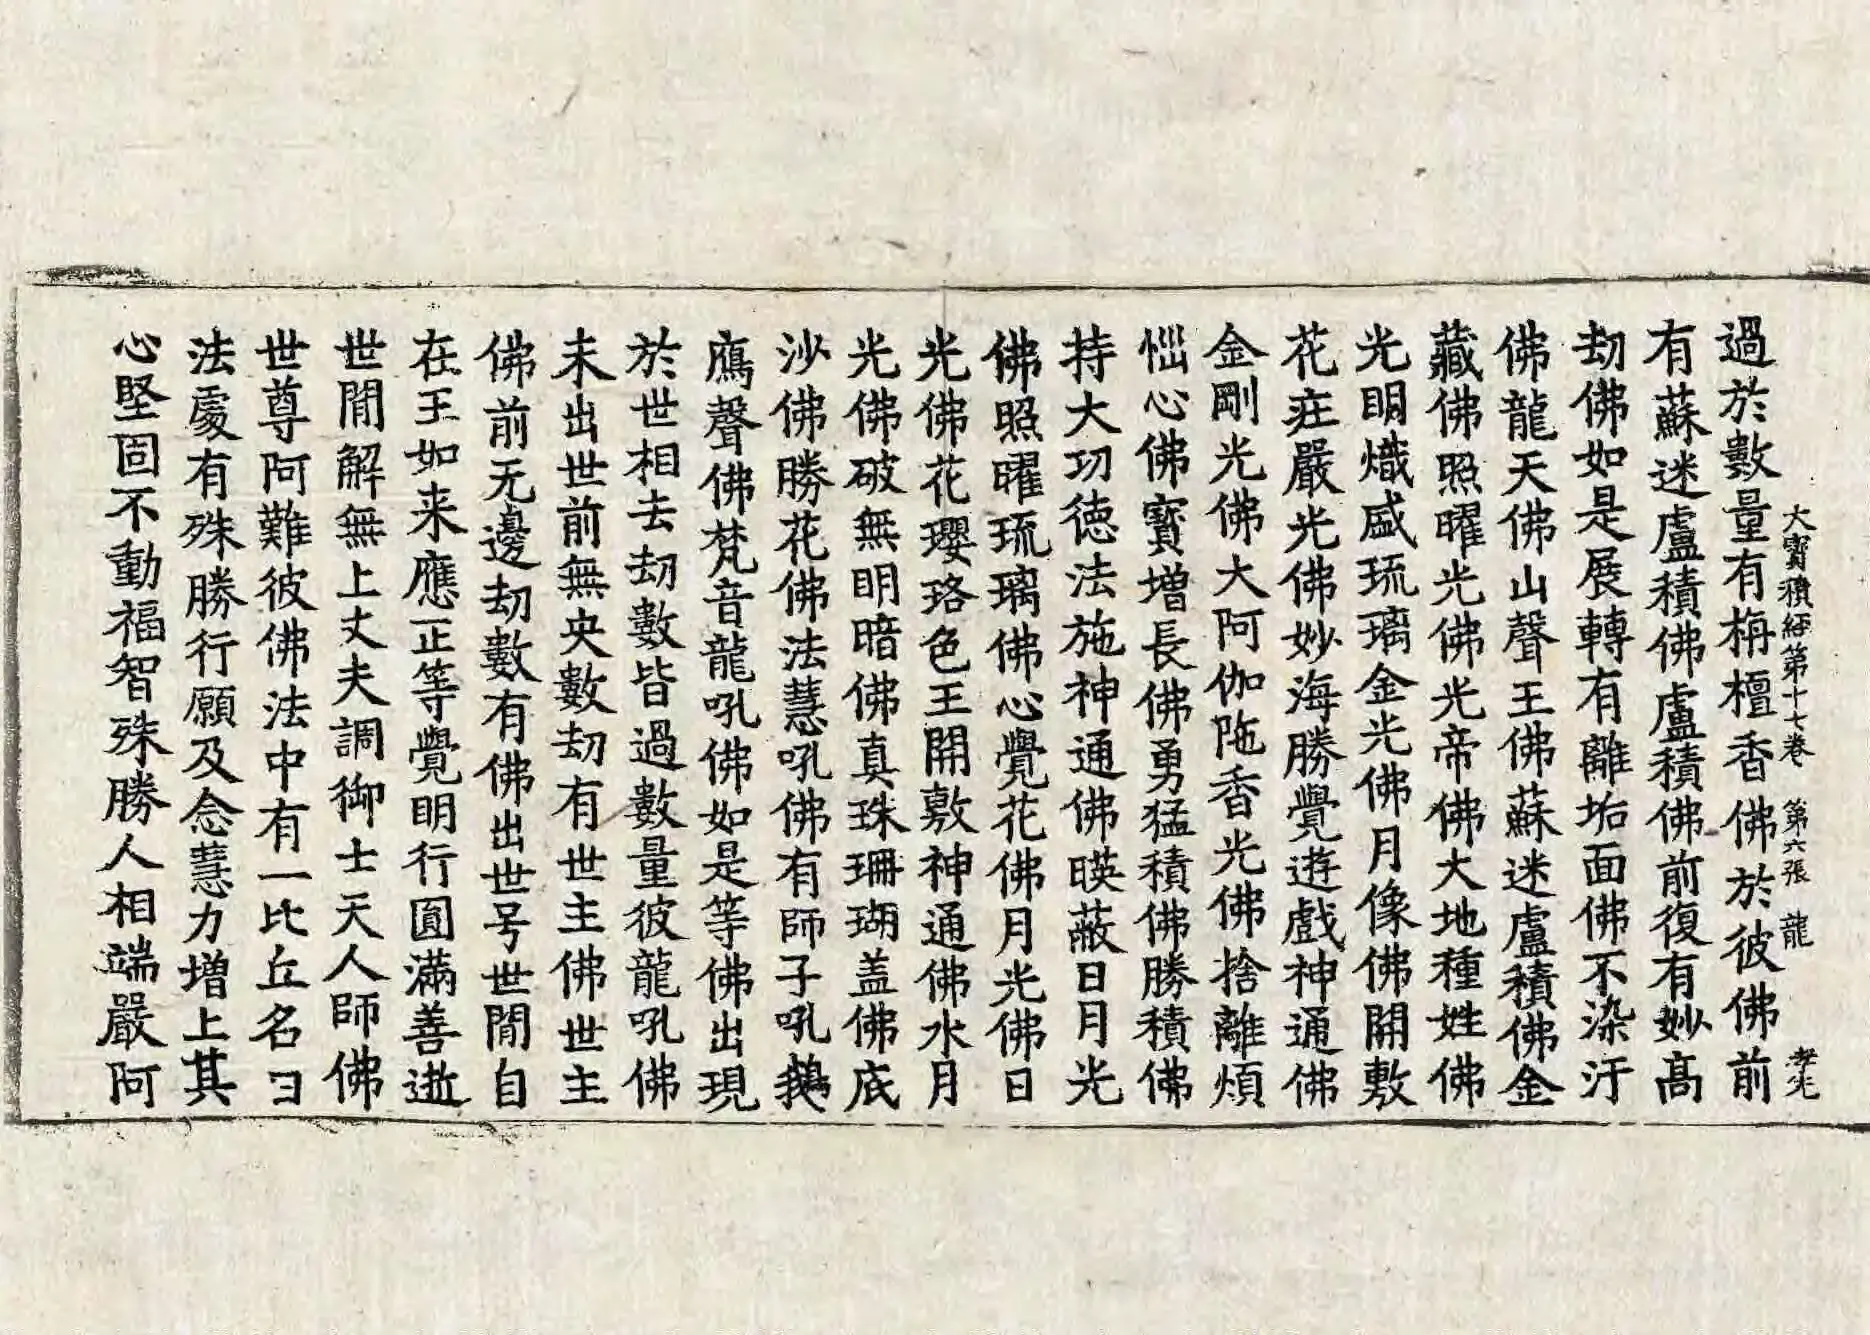 大寶積經第十七卷 第六張 龍 孝光
過於數量有栴檀香佛於彼佛前
有蘇迷盧積佛盧積佛前復有妙高
劫佛如是展轉有離垢面佛不染汙
佛龍天佛山聲王佛蘇迷盧積佛金
藏佛照曜光佛光帝佛大地種姓佛
光明熾盛琉璃金光佛月像佛開敷
花庄嚴光佛妙海勝覺遊戲神通佛
金剛光佛大阿伽陁香光佛捨離煩
惱心佛寶增長佛勇猛積佛勝積佛
持大功德法施神通佛暎蔽日月光
佛照曜琉璃佛心覺花佛月光佛日
光佛花瓔珞色王開敷神通佛水月
光佛破無明暗佛真珠珊瑚盖佛底
沙佛勝花佛法慧吼佛有師子吼鵝
鴈聲佛梵音龍吼佛如是等佛出現
於世相去劫數皆過數量彼龍吼佛
未出世前無央數劫有世主佛世主
佛前无邊劫數有佛出世号世間自
在王如来應正等覺明行圓滿善逝
世間解無上丈夫調御士天人師佛
世尊阿難彼佛法中有一比丘名曰
法處有殊勝行願及念慧力增上其
心堅固不動福智殊勝人相端嚴阿